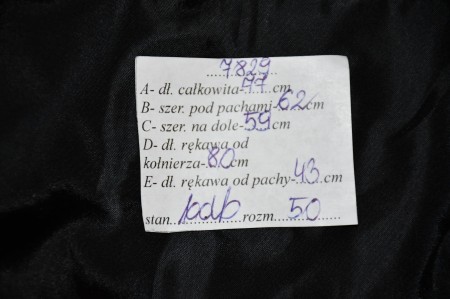 7829
A- dł. całkowita-77 cm
B- szer. pod pachami-62 cm
C- szer. na dole-59 cm
D- dł. rękawa od
kołnierza-80 cm
E- dł. rękawa od pachy-43 cm
stan bdb rozm. 50